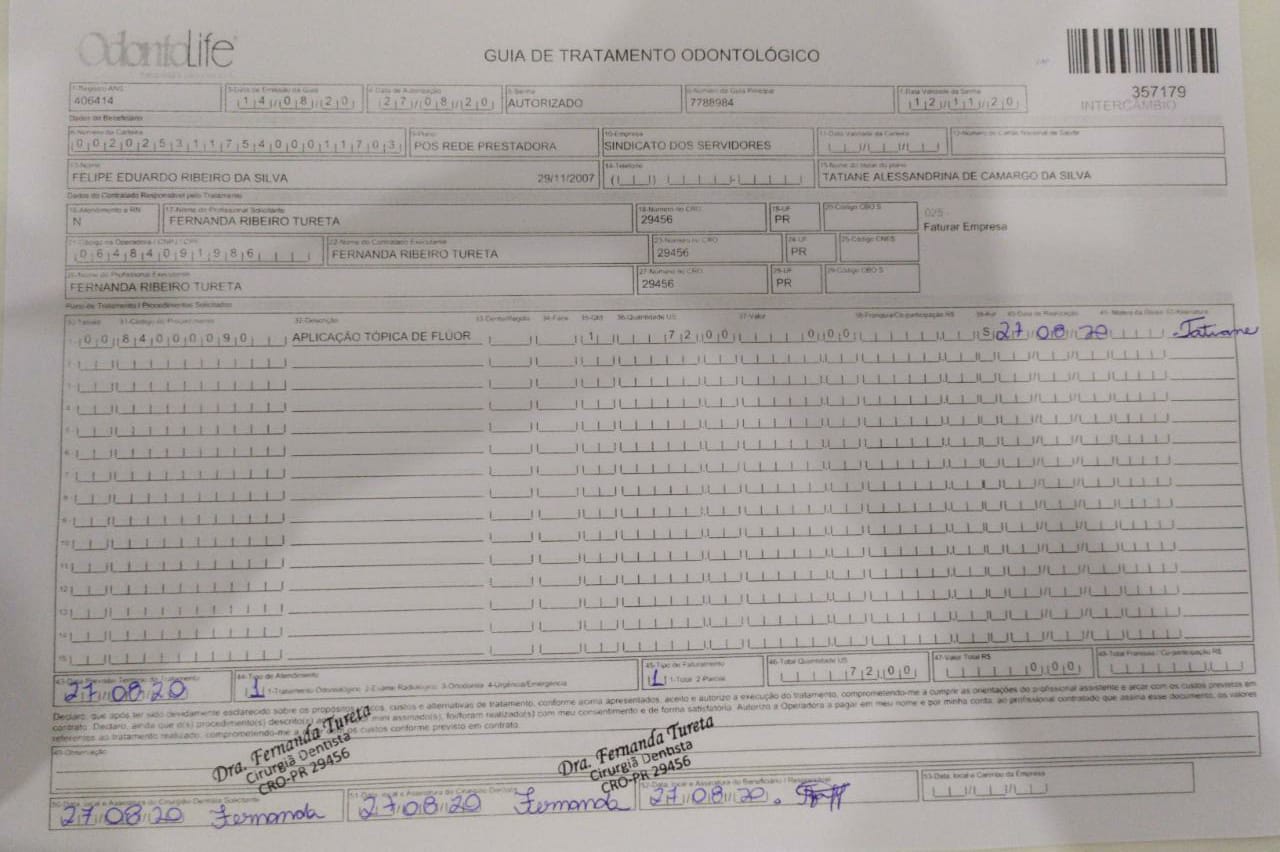 OdontoLife
GUIA DE TRATAMENTO ODONTOLÓGICO
357179
INTERCÂMBIO
1-Registro ANS 3-Data de Emissão da Guia 4-Data de Autorização 5-Senha 6-Número da Guia Principal 7-Data Validade da Senha
406414 14/08/20 27/08/20 AUTORIZADO 7788984 12/11/20
Dados do Beneficiário
8-Número da Carteira 9-Plano 10-Empresa 11-Data Validade da Carteira 12-Número do Cartão Nacional de Saúde
00202531175400011703 POS REDE PRESTADORA SINDICATO DOS SERVIDORES
13-Nome 14-Telefone 15-Nome do titular do plano
FELIPE EDUARDO RIBEIRO DA SILVA 29/11/2007 TATIANE ALESSANDRINA DE CAMARGO DA SILVA
Dados do Contratado Responsável pelo Tratamento
16-Atendimento a RN 17-Nome do Profissional Solicitante 18-Número no CRO 19-UF 20-Código CBO S
N FERNANDA RIBEIRO TURETA 29456 PR
025 -
Faturar Empresa
21-Código na Operadora / CNPJ / CPF 22-Nome do Contratado Executante 23-Número no CRO 24-UF 25-Código CNES
06484091986 FERNANDA RIBEIRO TURETA 29456 PR
26-Nome do Profissional Executante 27-Número no CRO 28-UF 29-Código CBO S
FERNANDA RIBEIRO TURETA 29456 PR
Plano de Tratamento / Procedimentos Solicitados
30-Tabela 31-Código do Procedimento 32-Descrição 33-Dente/Região 34-Face 35-Qtd 36-Quantidade US 37-Valor 38-Franquia/Co-participação R$ 39-Aut 40-Data de Realização 42-Assinatura
1- 00 84000090 APLICAÇÃO TÓPICA DE FLÚOR 1 72 00 0 00 S 27 08 20 Tatiane
2-
3-
4-
5-
6-
7-
8-
9-
10-
11-
12-
13-
14-
15-
43-Data Previsão Término do Tratamento 44-Tipo de Atendimento 45-Tipo de Faturamento 46-Total Quantidade US 47-Valor Total R$ 48-Total Franquia / Co-participação R$
27/08/20 1 1-Tratamento Odontológico 2-Exame Radiológico 3-Ortodontia 4-Urgência/Emergência 1 1-Total 2-Parcial 72 00 0 00
Declaro, que após ter sido devidamente esclarecido sobre os propósitos, riscos, custos e alternativas de tratamento, conforme acima apresentados, aceito e autorizo a execução do tratamento, comprometendo-me a cumprir as orientações do profissional assistente e arcar com os custos previstos em
contrato. Declaro, ainda que o(s) procedimento(s) descrito(s) mim assinado(s), foi/foram realizado(s) com meu consentimento e de forma satisfatória. Autorizo a Operadora a pagar em meu nome e por minha conta, ao profissional contratado que assina esse documento, os valores
referentes ao tratamento realizado, comprometendo-me a os custos conforme previsto em contrato.
49-Observação
Dra. Fernanda Tureta
Cirurgiã Dentista
CRO-PR 29456
Dra. Fernanda Tureta
Cirurgiã Dentista
CRO-PR 29456
50-Data, local e Assinatura do Cirurgião Dentista Solicitante 51-Data, local e Assinatura do Cirurgião Dentista 52-Data, local e Assinatura do Beneficiário / Responsável 53-Data, local e Carimbo da Empresa
27/08/20 Fernanda 27/08/20 Fernanda 27/08/20.